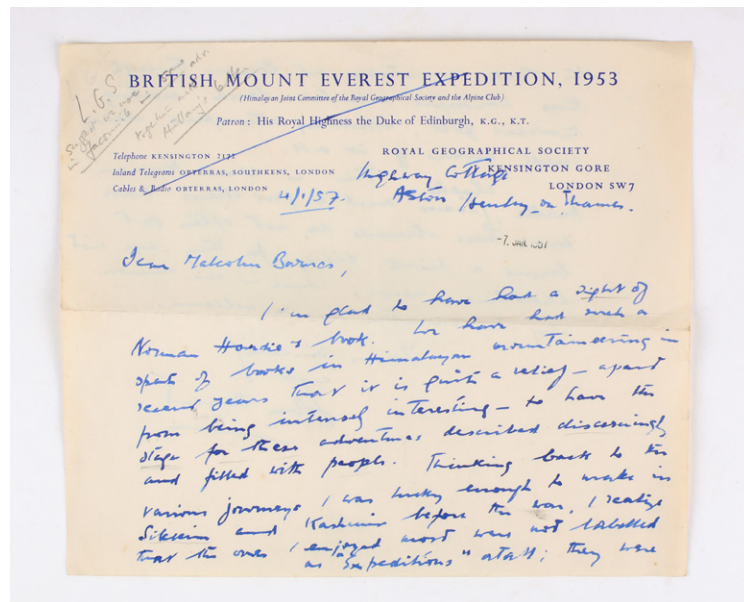 L.G.S.
BRITISH MOUNT EVEREST EXPEDITION, 1953
(Himalayan Joint Committee of the Royal Geographical Society and the Alpine Club)
Patron: His Royal Highness the Duke of Edinburgh, K.G., K.T.
Telephone KENSINGTON 2172
Inland Telegrams OBTERRAS, SOUTHKENS, LONDON
Cables & Radio OBTERRAS, LONDON
ROYAL GEOGRAPHICAL SOCIETY
KENSINGTON GORE
LONDON SW7
Highway Cottage
Aston
Henley-on-Thames.
4/1/57.
-7 JAN 1957
Dear Malcolm Barnes,
I'm glad to have had a sight of
Norman Hardie's book. We have had such a
spate of books in Himalayan mountaineering in
recent years that it is quite a relief - apart
from being intensely interesting - to have the
stage for these adventures described discerningly
and filled with people. Thinking back to the
various journeys I was lucky enough to make in
Sikkim and Kashmir before the war, I realize
that the ones I enjoyed most were not labelled
as "Expeditions" at all; they were